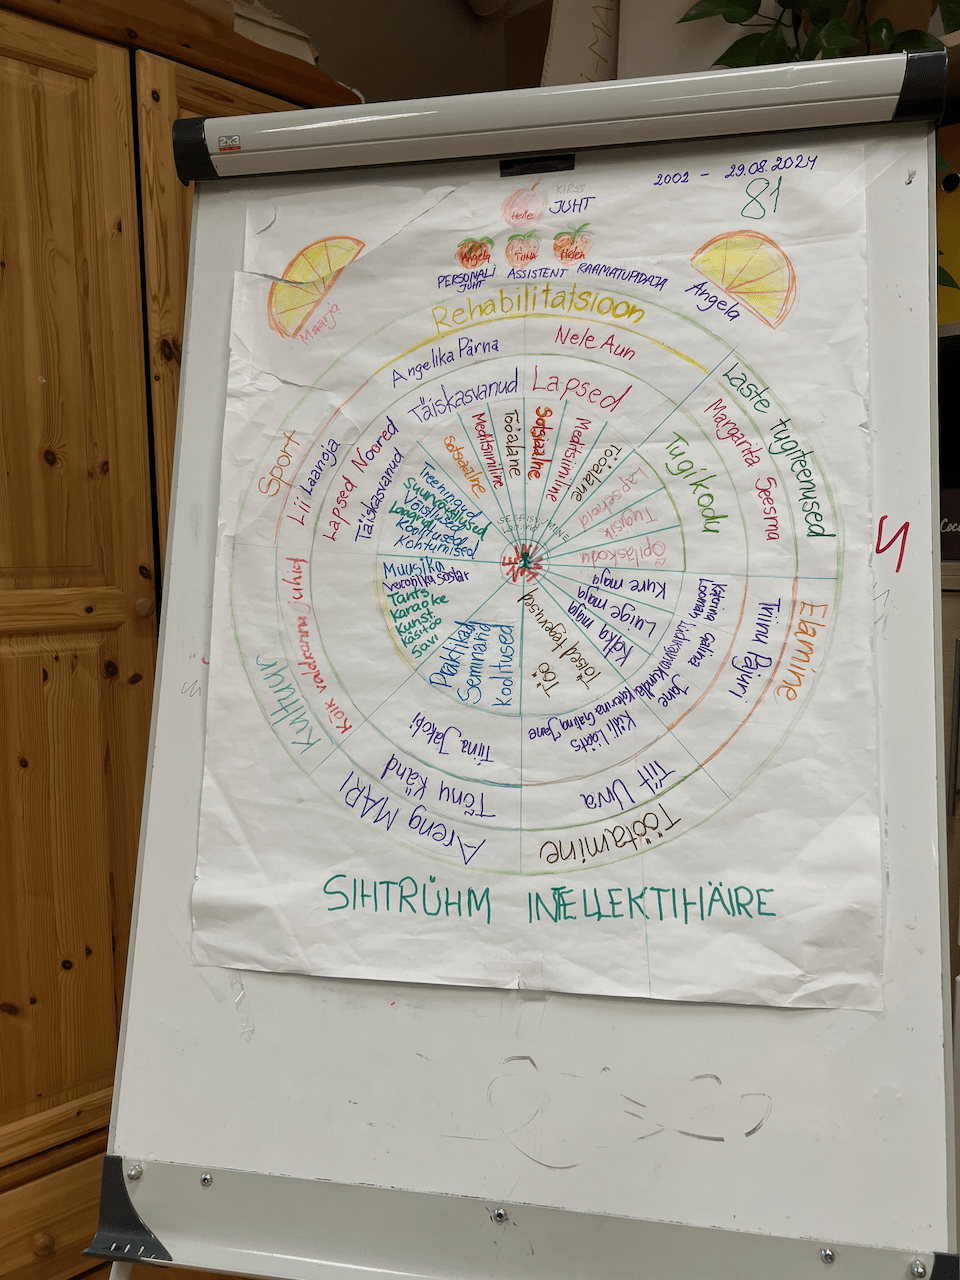 2x3
2002 – 29.08.2024
81
KIRSS
Helle
JUHT
Angela
Tiina
Helen
PERSONALI JUHT
ASSISTENT
RAAMATUPIDAJA
Maarja
Angela
Rehabilitatsioon
Angelika Pärna
Nele Aun
Täiskasvanud
Lapsed
Sotsiaalne
Meditsiiniline
Tööalane
Sotsiaalne
Meditsiiniline
Tööalane
Laste tugiteenused
Margarita Seesma
Tugikodu
Lapsehoid
Tugiisik
Õpilaskodu
Elamine
Triinu Pajuri
Kure maja
Luige maja
Kotka maja
Katerina
Galina
Jane
Töötamine
Tiit Urva
Külli Läats
Katerina Galina Jane
Töö
Teised tegevused
Areng MARI
Tõnu Känd
Tiina Jakobi
Praktikad
Seminarid
Koolitused
Kultuur
Kõik valdkonna juhid
Muusika
Tants
Karaoke
Kunst
Käsitöö
Savi
Sport
Lii Laanoja
Lapsed Noored
Täiskasvanud
Treeningud
Suurvõistlused
Võistlused
Laagrid
Koolitused
Kohtumised
SIHTRÜHM INTELLEKTIHÄIRE